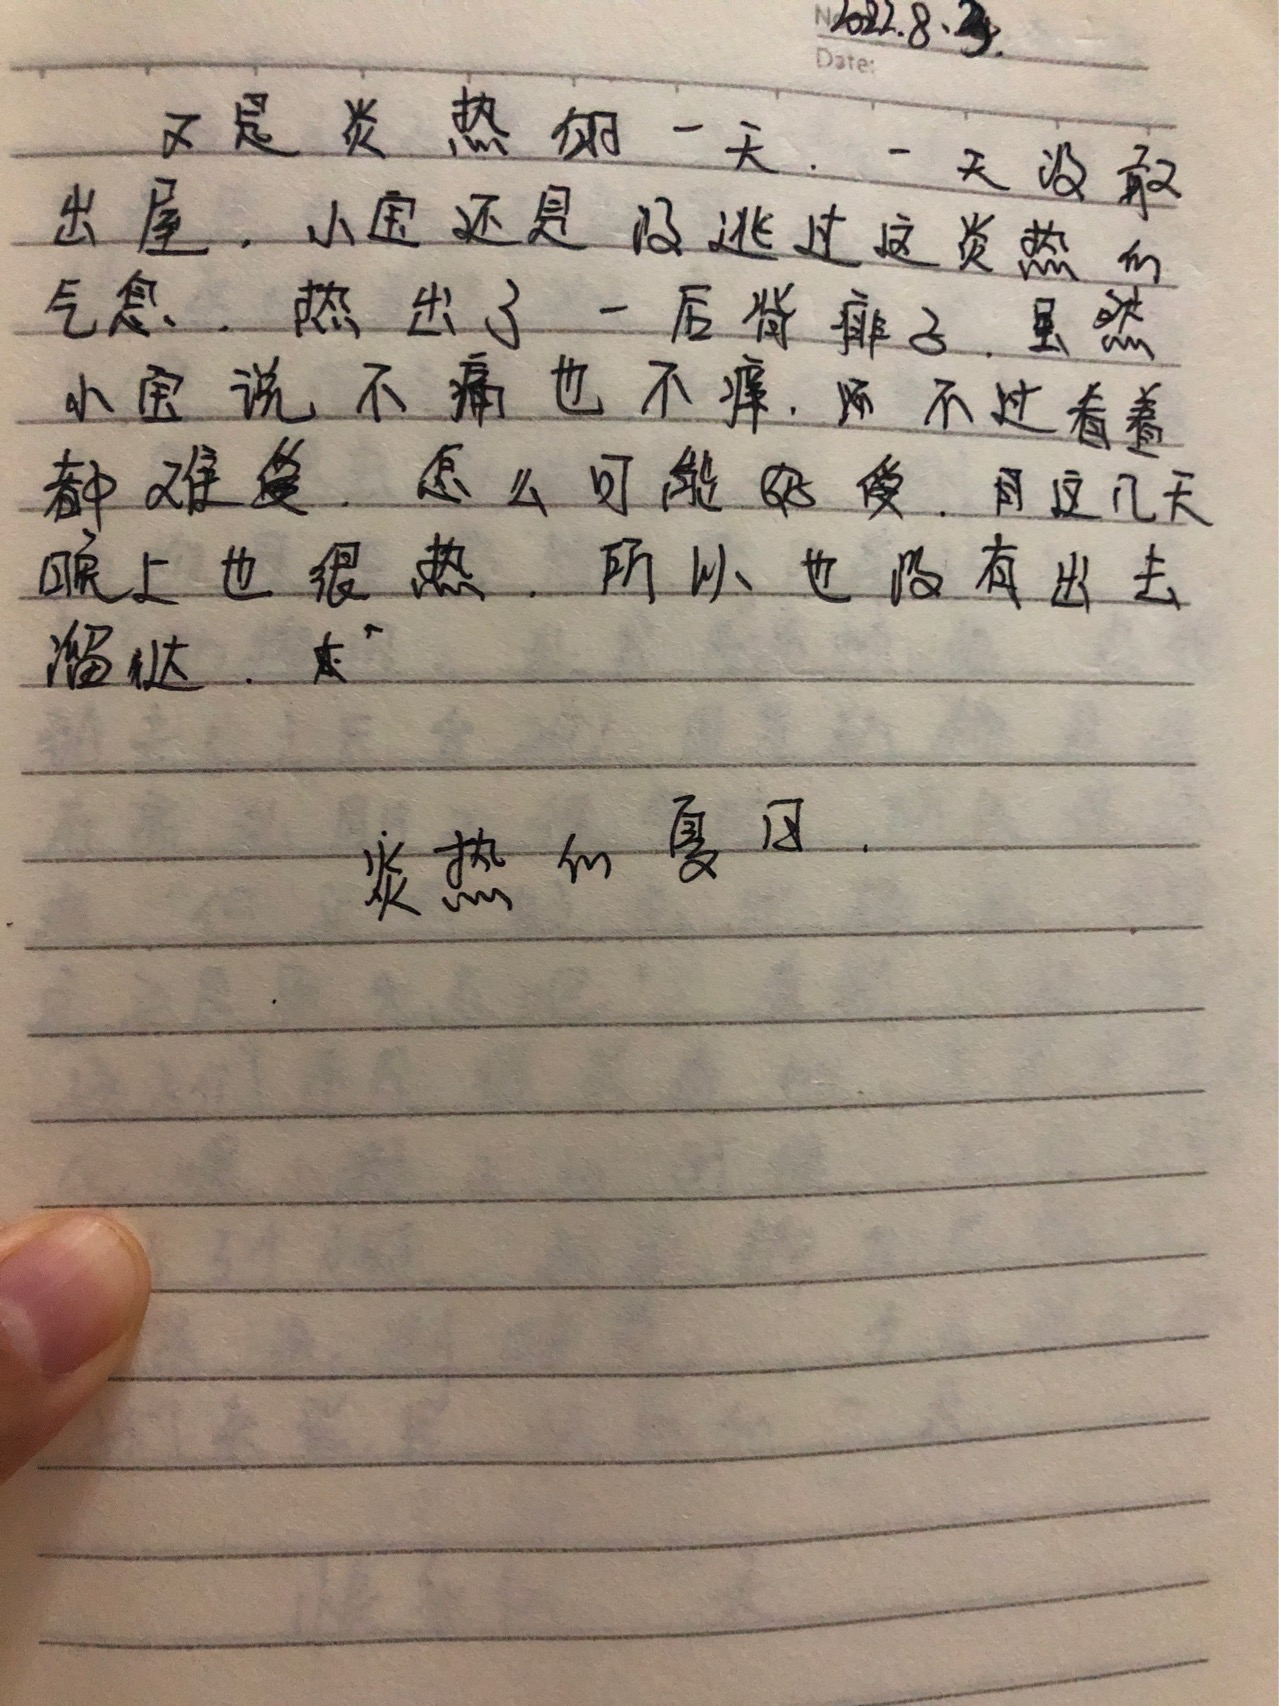 No
2022.8.
Date:
又是炎热的一天.一天没敢
出屋.小宝还是没逃过这炎热的
气息.热出了一后背痱子.虽然
小宝说不痛也不痒.不过看着
都难受.怎么可能好受.而这几天
晚上也很热.所以也没有出去
溜达.
炎热的夏日.